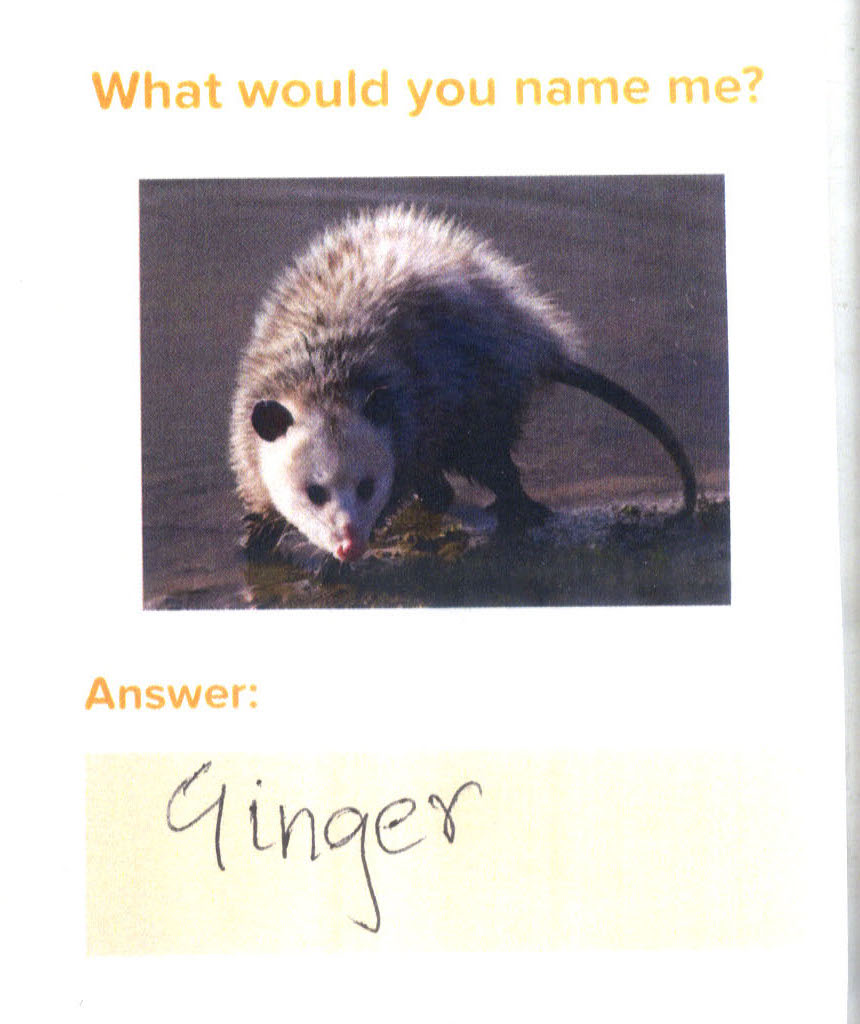 What would you name me?
Answer:
Ginger